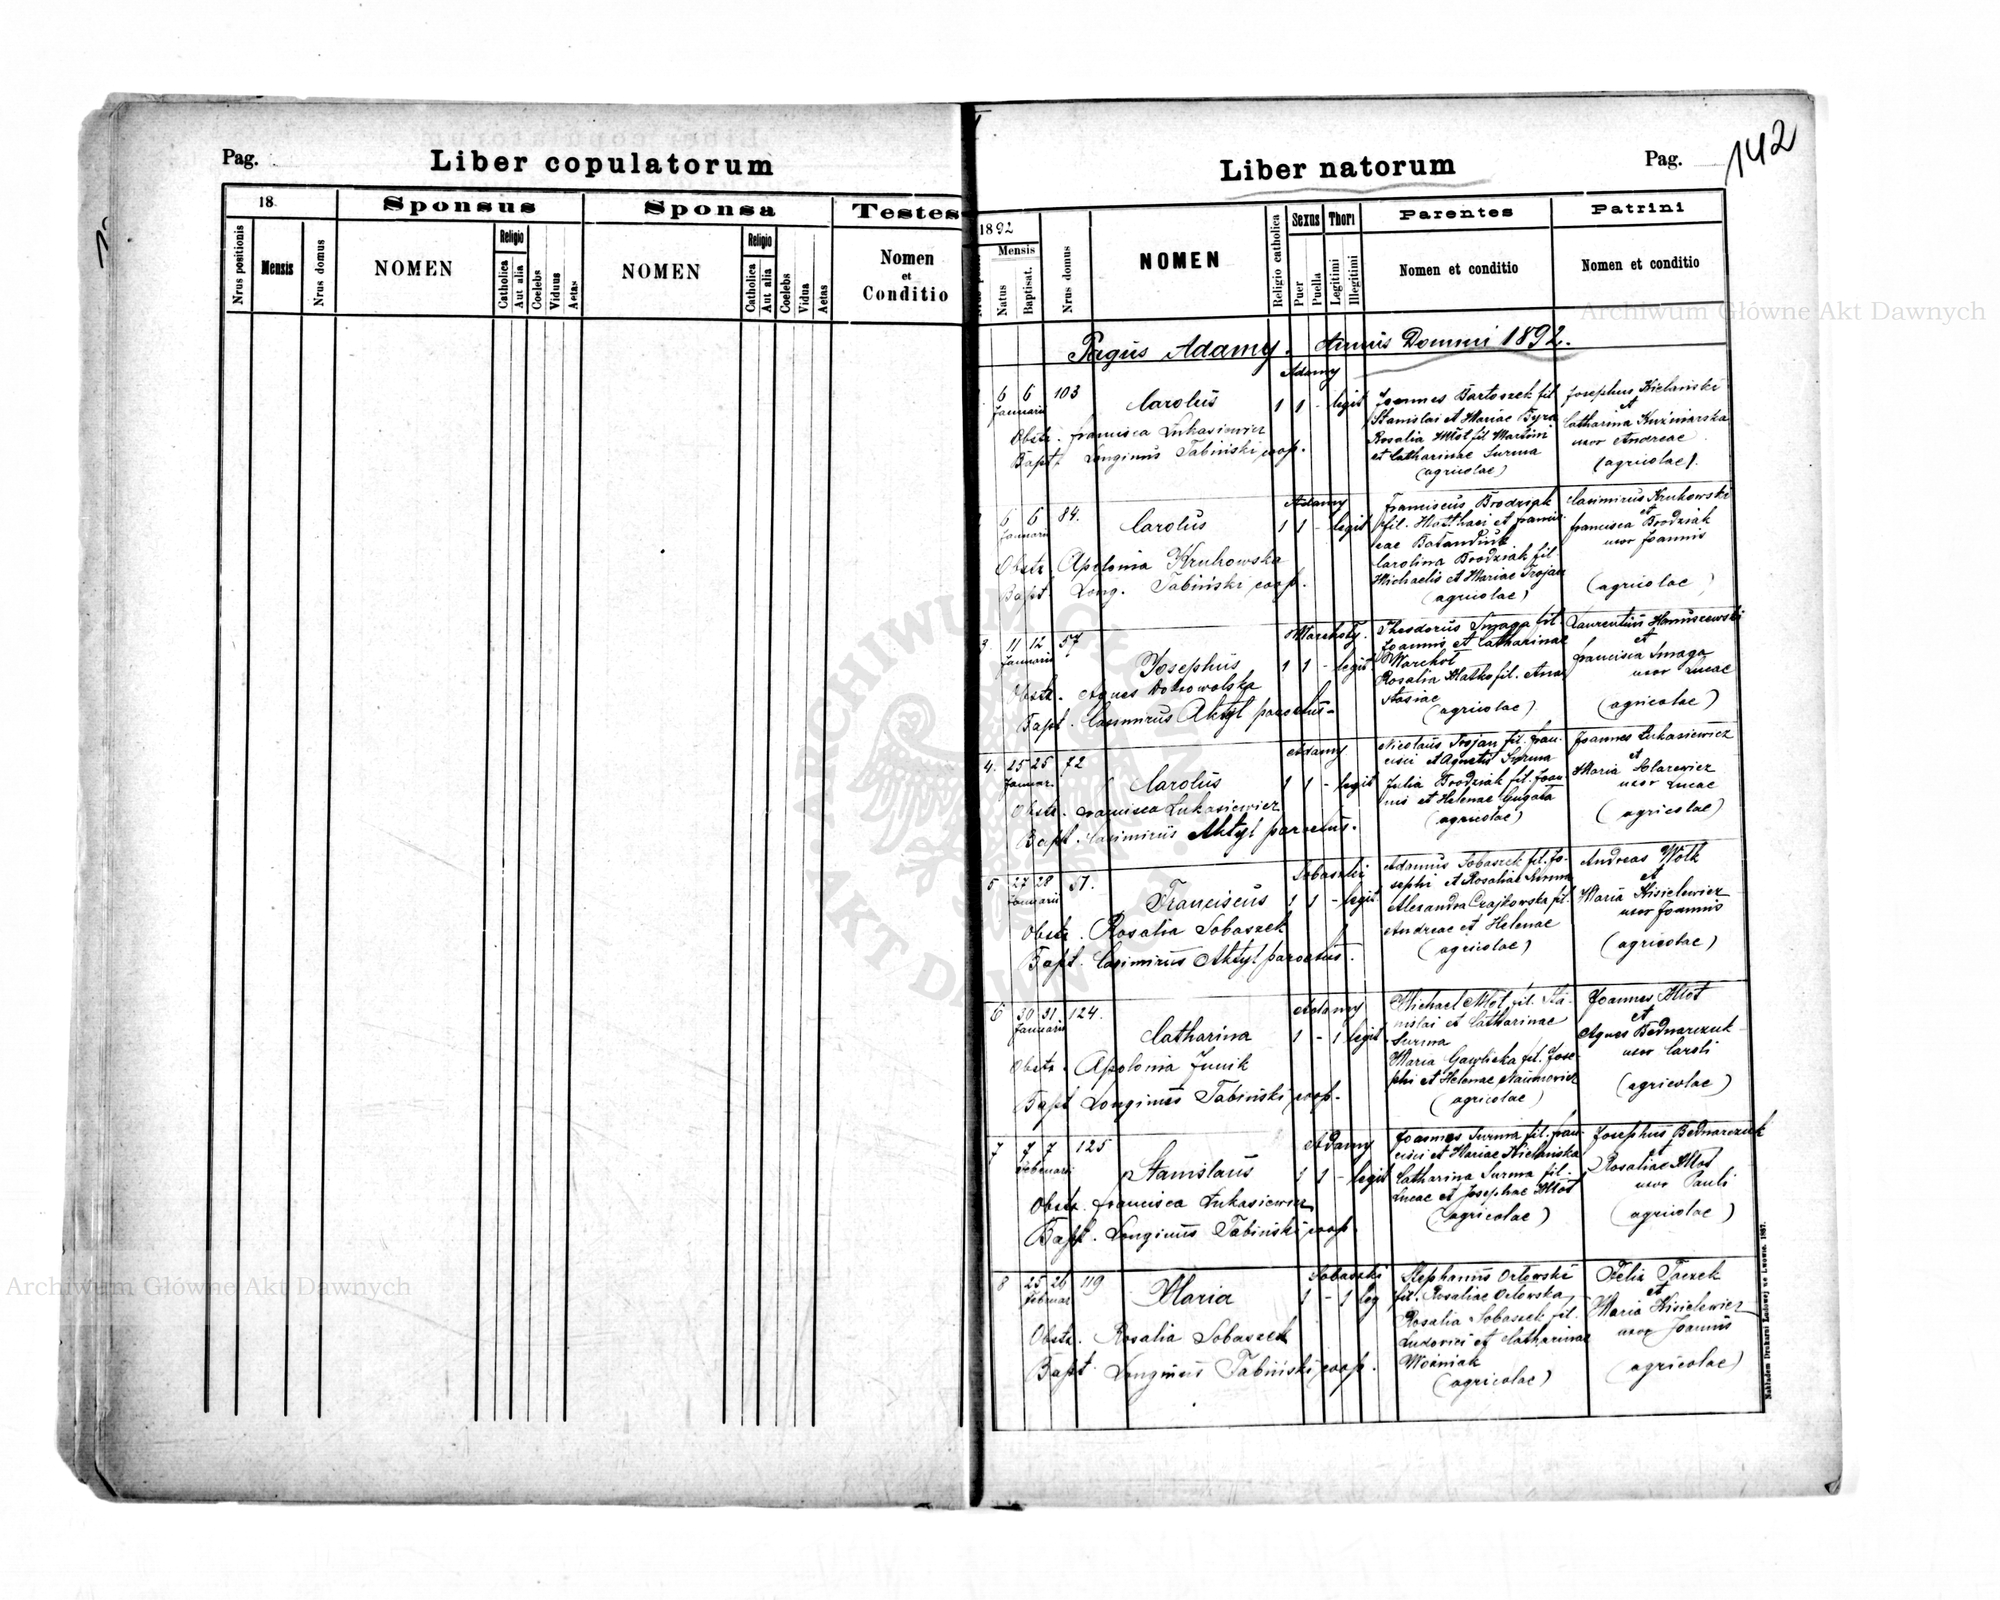 Pag.
Liber copulatorum
18
Sponsus
Sponsa
Testes
Nrus positionis
Mensis
Nrus domus
NOMEN
Religio
Catholica
Aut alia
Coelebs
Viduus
Aetas
NOMEN
Religio
Catholica
Aut alia
Coelebs
Vidua
Aetas
Nomen
et
Conditio
Liber natorum
Pag.
142
1892
Mensis
Natus
Baptisat.
Nrus domus
NOMEN
Religio catholica
Sexus
Puer
Puella
Thori
Legitimi
Illegitimi
Parentes
Nomen et conditio
Patrini
Nomen et conditio
Pagus Adamy. Annus Domini 1892.
Adamy
6 6 103
Januarii
Carolus
1 1 - legit
Obstr. Francisca Lukasiewicz
Bapt. Longinus Tabiński coop.
Joannes Bartoszek fil
Stanislai et Mariae Byra
Rosalia Młot fil Martini
et Catharinae Surma
(agricolae)
Josephus Nielański
et
Catharina Kuźniarska
uxor Andreae
(agricolae).
Adamy
6 6 84.
Januarii
Carolus
1 1 - legit
Obstr. Apolonia Kruhowska
Bapt. Long. Tabiński coop.
Franciscus Brodziak
fil. Matthaei et Francis
cae
Carolina Brodziak fil.
Michaelis et Mariae Trojan
(agricolae)
Casimirus Kruhowski
et
Francisca Brodziak
uxor Joannis
(agricolae)
Warchoły.
3 11 12 57
Januarii
Josephus
1 1 - legit
Obstr. Agnes Dobrowolska
Bapt. Casimirus Aktyl parochus.
Theodorus Smaga fil
Joannis et Catharinae
Warchoł
Rosalia Matko fil. Ana
stasiae
(agricolae)
Laurentius Haniszewski
et
Francisca Smaga
uxor Lucae
(agricolae)
Adamy
4. 25 25 72
Januar.
Carolus
1 1 - legit
Obstr. Francisca Lukasiewicz
Bapt. Casimirus Aktyl parochus.
Nicolaus Trojan fil. Fran-
cisci et Agnetis Surma
Julia Brodziak fil. Joan-
nis et Helenae Gugała
(agricolae)
Joannes Lukasiewicz
et
Maria
uxor Lucae
(agricolae)
Sobaszki
5 27 28 51.
Januarii
Franciscus
1 1 - legit.
Obstr. Rosalia Sobaszek
Bapt. Casimirus Aktyl parochus.
Adamus Sobaszek fil. Jo-
sephi et Rosaliae Surma
Alexandra Czajkowska fil.
Andreae et Helenae
(agricolae)
Andreas Wolk
et
Maria Kisielewicz
uxor Joannis
(agricolae)
Adamy
6 30 31 124.
Januarii
Catharina
1 - 1 legit
Obstr. Apolonia Junik
Bapt Longinus Tabiński coop.
Michael Młot fil. Sta-
nislai et Catharinae
Surma
Maria Gawlicka fil. Jose-
phi et Helenae Naumowicz
(agricolae)
Joannes Młot
et
Agnes Bednarczuk
uxor Caroli
(agricolae)
Adamy
7 7 7 125
Februarii
Stanislaus
1 1 - legit
Obstr. Francisca Lukasiewicz
Bapt. Longinus Tabiński coop.
Joannes Surma fil. Fran-
cisci et Mariae Nielańska
Catharina Surma fil.
Lucae et Josephae Młot
(agricolae)
Josephus Bednarczuk
Rosaliae Młot
uxor Pauli
(agricolae)
Sobaszki
8 25 26 119
Februar
Maria
1 - 1 leg
Obstr. Rosalia Sobaszek
Bapt. Longinus Tabiński coop.
Stephanus Orłowski
fil. Rosaliae Orłowska,
Rosalia Sobaszek fil.
Ludovici et Catharinae
Woźniak
(agricolae)
Felix Taczek
et
Maria Kisielewicz
uxor Joannis
(agricolae)
Nakładem Drukarni Ludowej we Lwowie. 1887.
Archiwum Główne Akt Dawnych
Archiwum Główne Akt Dawnych